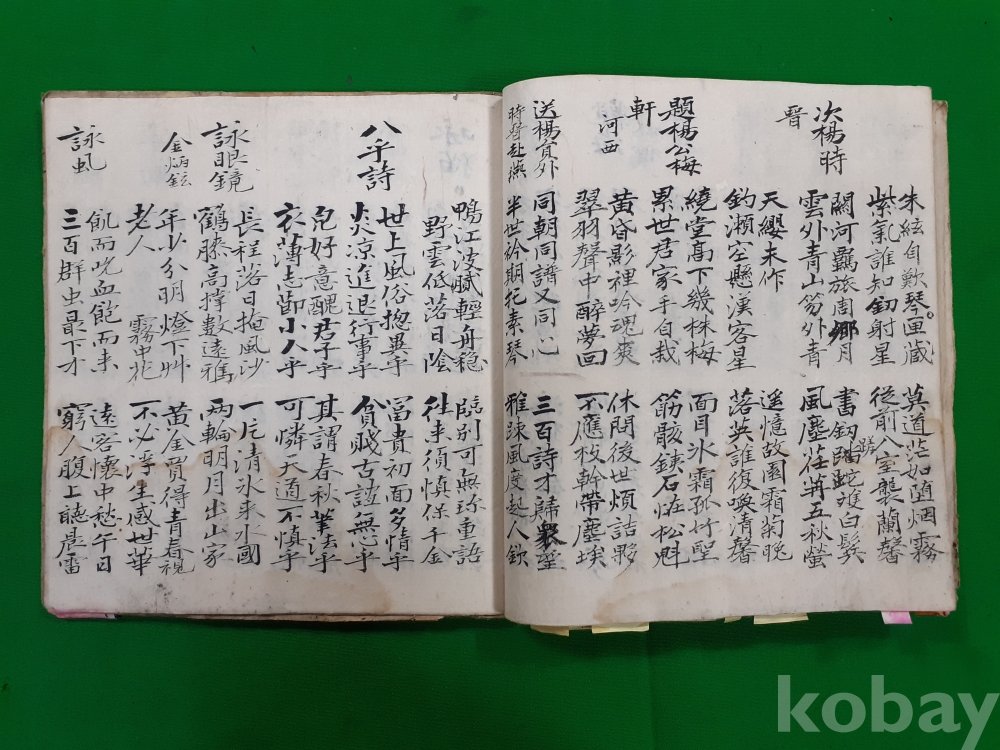 朱絃自歎琴匣藏 莫道茫如随烟霧
紫氣誰知釰射星 從前八室襲蘭馨
次楊時 關河羈旅周鄕月 書釰蹉跎雙白鬂
晋 雲外青山分外青 風塵荏苒五秋螢
天纓未作 遥憶故園霜菊晩
釣瀬空懸漢客星 落英誰復喚清馨
題楊公梅 繞堂高下幾株梅 面目氷霜孤竹聖
軒 累世君家手自栽 筋骸鐵石在松魁
河西 黄昏影裡吟魂爽 休関後世煩詰夥
翠羽聲中醉夢回 不應枝幹帶塵埃
送楊貟外 同朝同譜又同心 三百詩才歸衆聖
時督赴燕 半世衿期花素琴 雅踈風度起人欽
鴨江波膩輕舟穩 臨別可無珎重語
野雲低落日陰 往車須慎保千金
八乎詩 世上風俗摠異乎 富貴初面多情乎
炎凉進退行事乎 貧賤古誼無乎
皃好意醜君子乎 其謂春秋筆法乎
衣薄志節小人乎 可憐天道不慎乎
詠眼鏡 長程落日掩風沙 一片清氷来水國
鶴膝高撑數遠鴉 两輪明月出山家
金炳鉉 年少分明燈下艸 黄金買得青春視
老人 霧中花 不必浮生感世華
飢而吮血飽而来 遠客懷中愁午日
詠虱 三百群虫最下才 窮人腹上聽晨雷
kobay